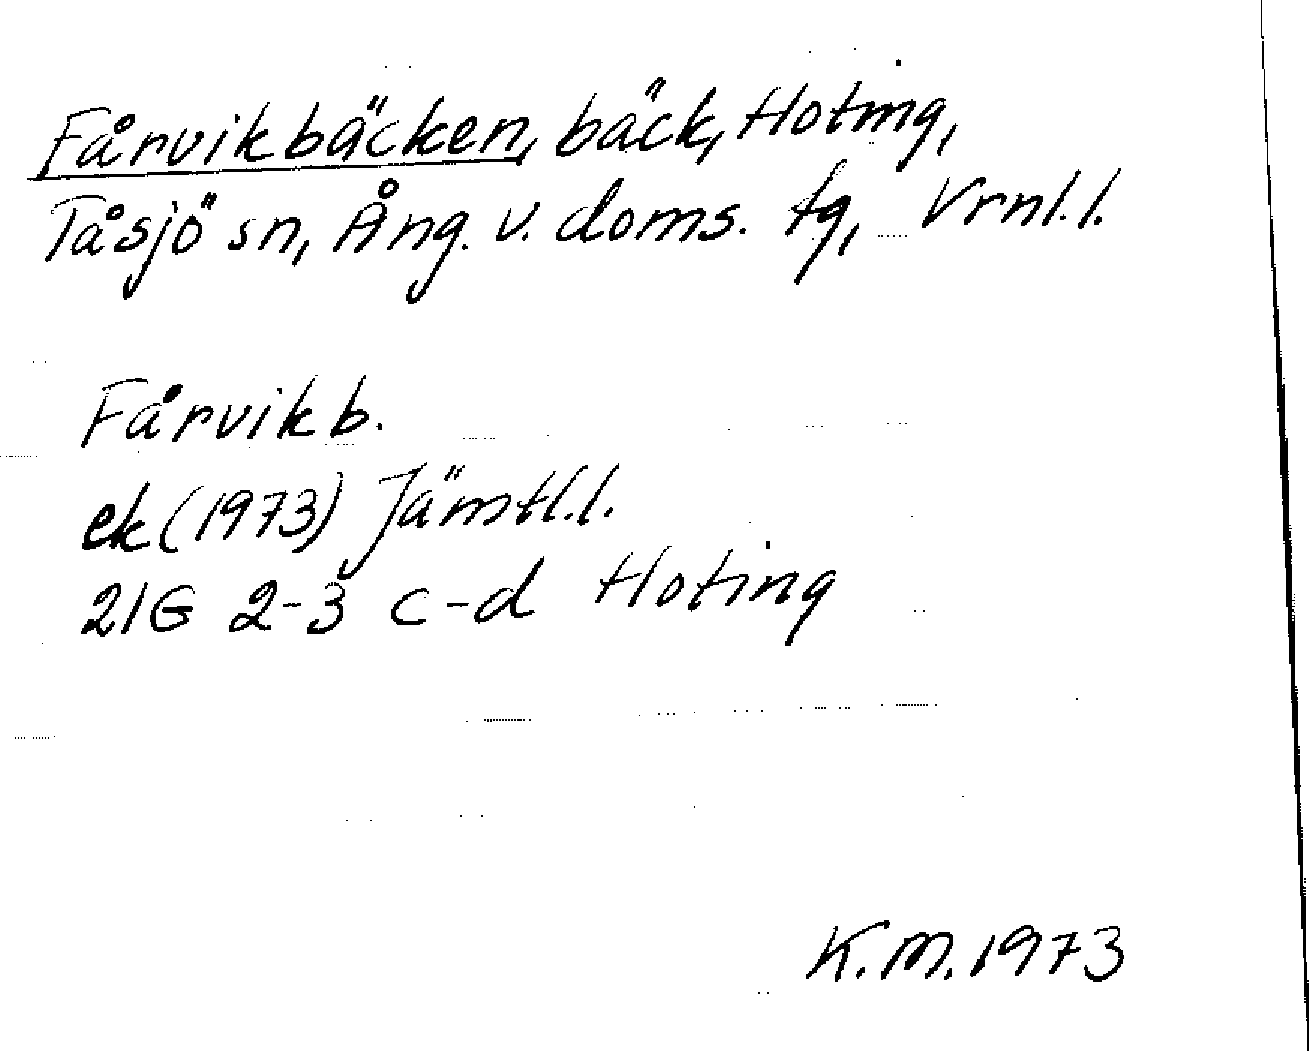 Fårvikbäcken, bäck, Hoting,
Tåsjö sn, Ång. v. doms. fg, Vrnl.l.
Fårvikb.
ek (1973) Jämtl.l.
21G 2-3 c-d Hoting
K.M. 1973